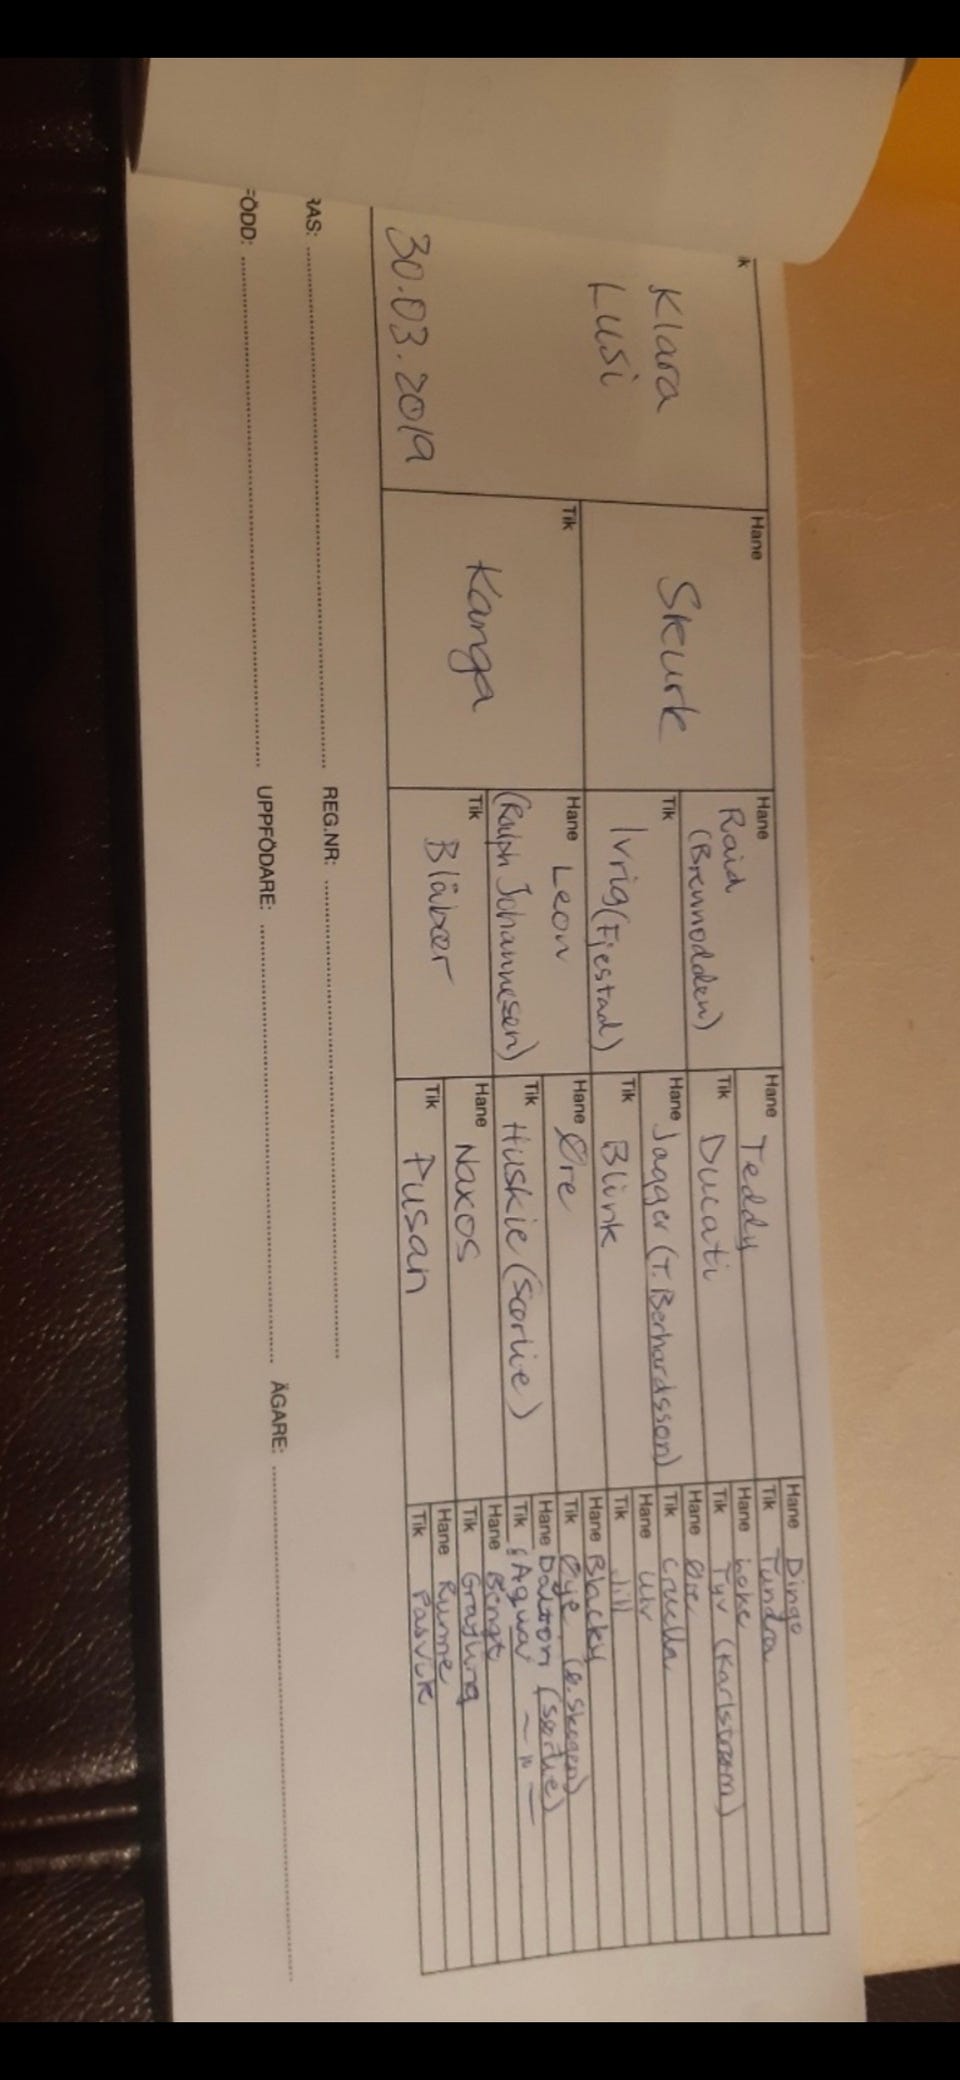 ik
Klara
Lusi
30.03.2019
Hane
Skurk
Tik
Kanga
Hane
Raid
(Brennodden)
Tik
Ivrig (Fjestad)
Hane Leon
(Ralph Johannesen)
Tik
Blåbær
Hane Teddy
Tik Ducati
Hane Jagger (T. Berhardsson)
Tik Blink
Hane Øre
Tik Huskie (Sørlie)
Hane Naxos
Tik Pusan
Hane Dingo
Tik Tundra
Hane Loke
Tik Tyv (Karlstrøm)
Hane
Tik Cruella
Hane Ulv
Tik Jill
Hane Blacky
Tik Øye
Hane Dalton (Sørlie)
Tik Aqua ~ " —
Hane Bengt
Tik Grayling
Hane Rune
Tik Pasvik
RAS: REG.NR:
FÖDD: UPPFÖDARE: ÄGARE: